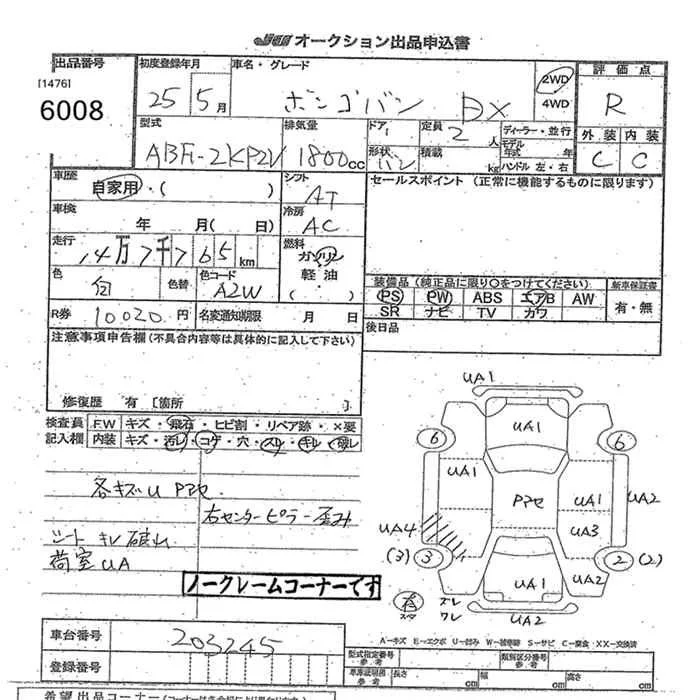 JU オークション出品申込書
出品番号
[1476]
6008
初度登録年月
25 5月
車名・グレード
ボンゴバン DX
2WD
4WD
評価点
R
外装 内装
C C
型式
ABF-2KP2V
排気量
1800cc
ドア
形状
バン
定員
2人
積載
kg
ディーラー・並行
モデル年式 年
ハンドル 左・右
車歴
自家用・( )
シフト
AT
セールスポイント(正常に機能するものに限ります)
車検
年 月( 日)
冷房
AC
走行
14万7千765km
燃料
ガソリン
軽油
( )
色
白
色替
色コード
A2W
装備品(純正品に限り○をつけてください)
新車保証書
PS PW ABS エアB AW
有・無
SR ナビ TV カワ
R券
10020円
名変通知期限 月 日
後日品
注意事項申告欄(不具合内容等は具体的に記入して下さい)
修復歴 有[箇所 ]
検査員
記入欄
F.W キズ・飛石・ヒビ割・リペア跡・×要
内装 キズ・汚れ・コゲ・穴・スリ・キレ・破レ
各キズU Pアセ
右センターピラー歪み
シート キレ破れ
荷室UA
ノークレームコーナーです
UA1
6
UA1
6
UA1
Pアセ
UA1
UA2
UA4
UA3
(3)
3
2
(2)
UA1
UA2
有
スペア
ズレ
ワレ
UA2
A-キズ E-エクボ U-凹み W-補修跡 S-サビ C-腐食 XX-交換済
車台番号
203245
登録番号
型式指定番号
参考
類別区分番号
参考
車庫証明用
参考
長さ cm
幅 cm
高さ cm
希望出品コーナー